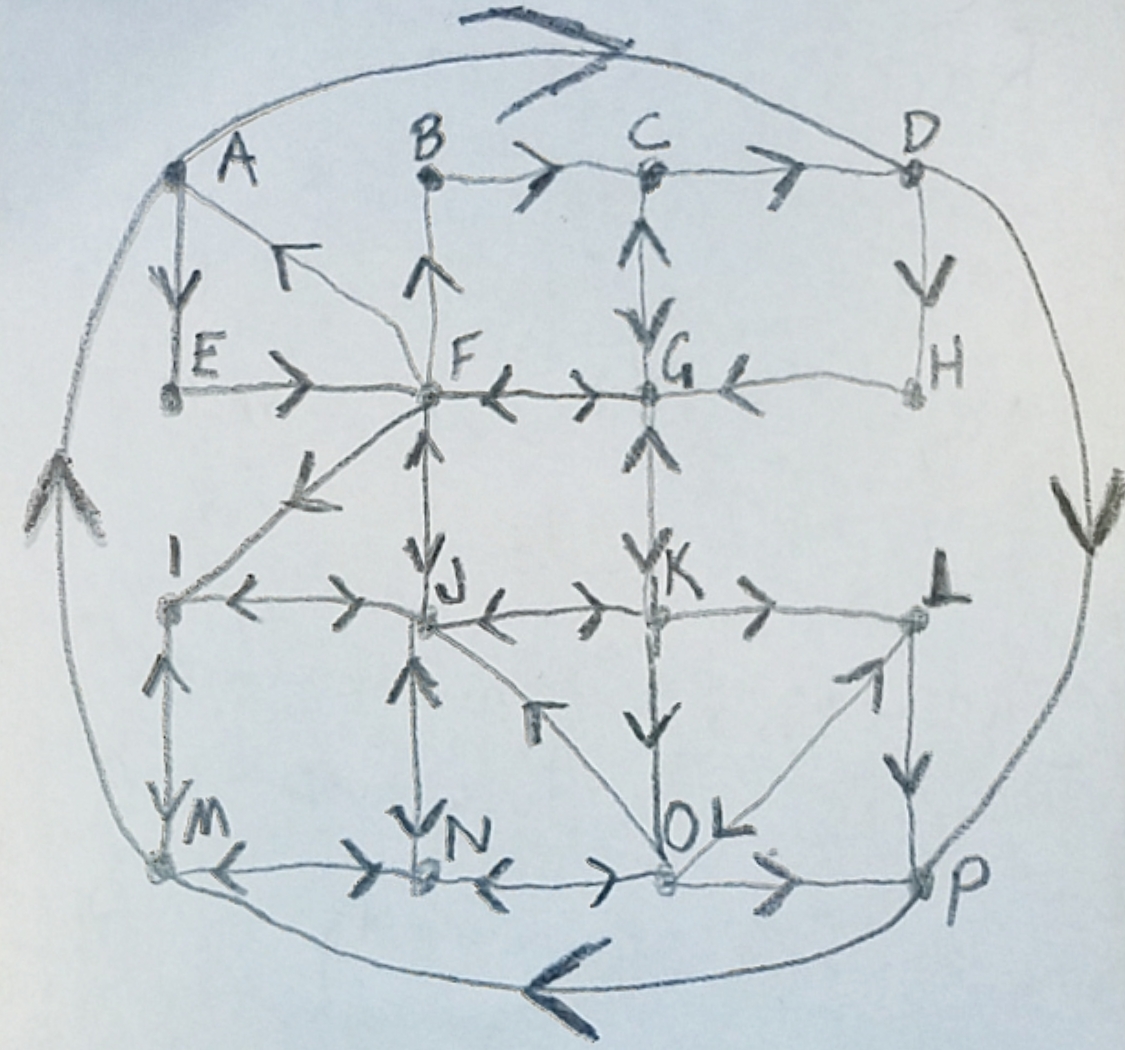 A B C D
E F G H
I J K L
M N O L P